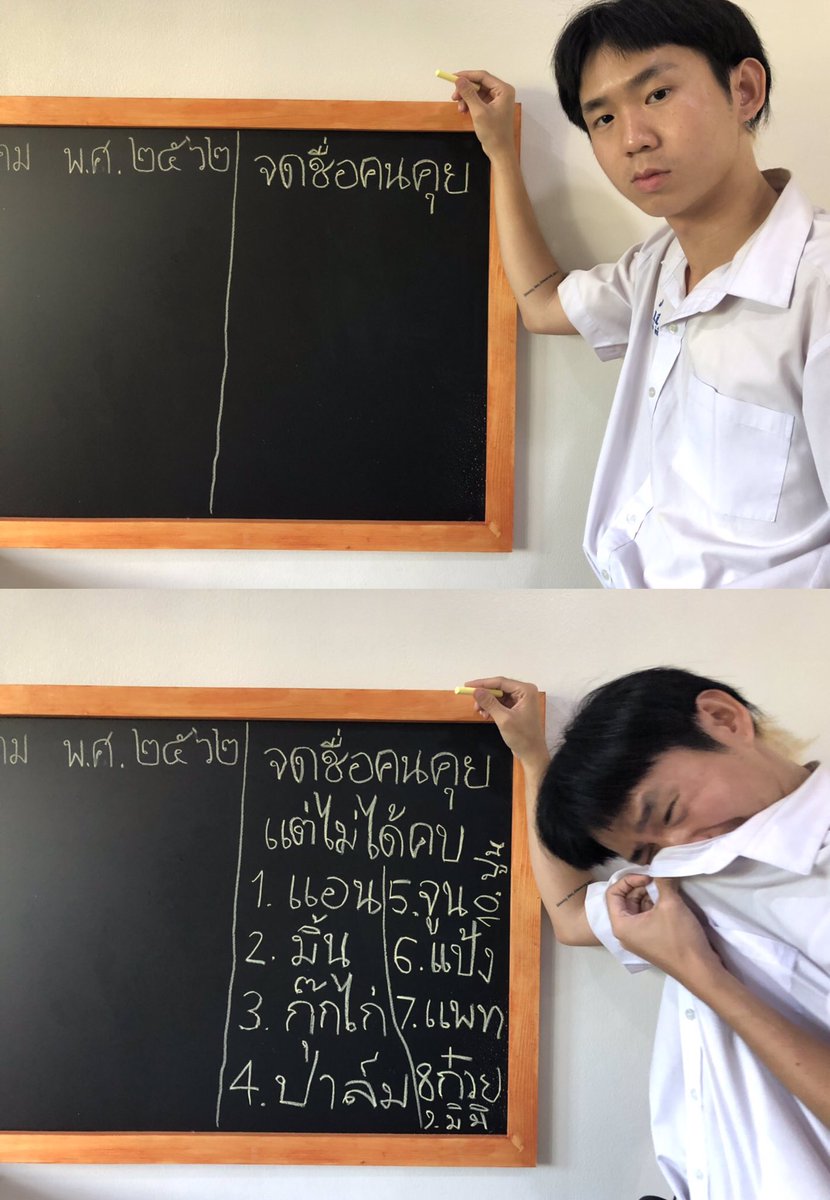 าคม พ.ศ. ๒๕๖๒
จดชื่อคนคุย
าคม พ.ศ. ๒๕๖๒
จดชื่อคนคุย
แต่ไม่ได้คบ
1. แอน
2. มิ้น
3. กุ๊กไก่
4. ปาล์ม
5. จูน
6. แป้ง
7. แพท
8 ก๋วย
9. มิมิ